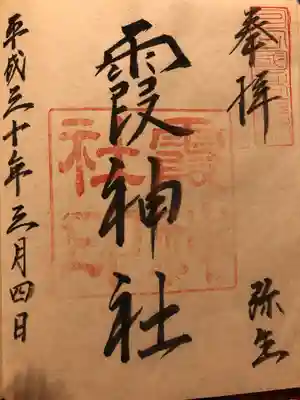 奉拝
弥生
霞神社
平成三十年三月四日